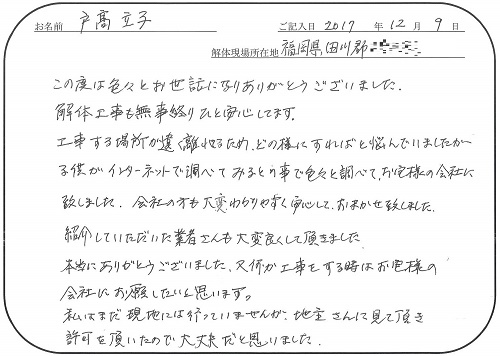 お名前 戸髙立子 ご記入日 2017 年 12 月 9 日
解体現場所在地 福岡県田川郡
この度は色々とお世話になりありがとうございました.
解体工事も無事終り ひと安心してます。
工事する場所が遠く離れてるため、どの様にすればと悩んでいましたが
子供がインターネットで調べてみるとの事で色々と調べて、お宅様の会社に
致しました. 会社の方も大変わかりやすく安心して、おまかせ致しました.
紹介していただいた業者さんも大変良くして頂きました
本当にありがとうございました、又何か工事をする時はお宅様の
会社にお願したいと思います。
私はまだ現地には行っていませんが、地主さんに見て頂き
許可を頂いたので大丈夫だと思いました.